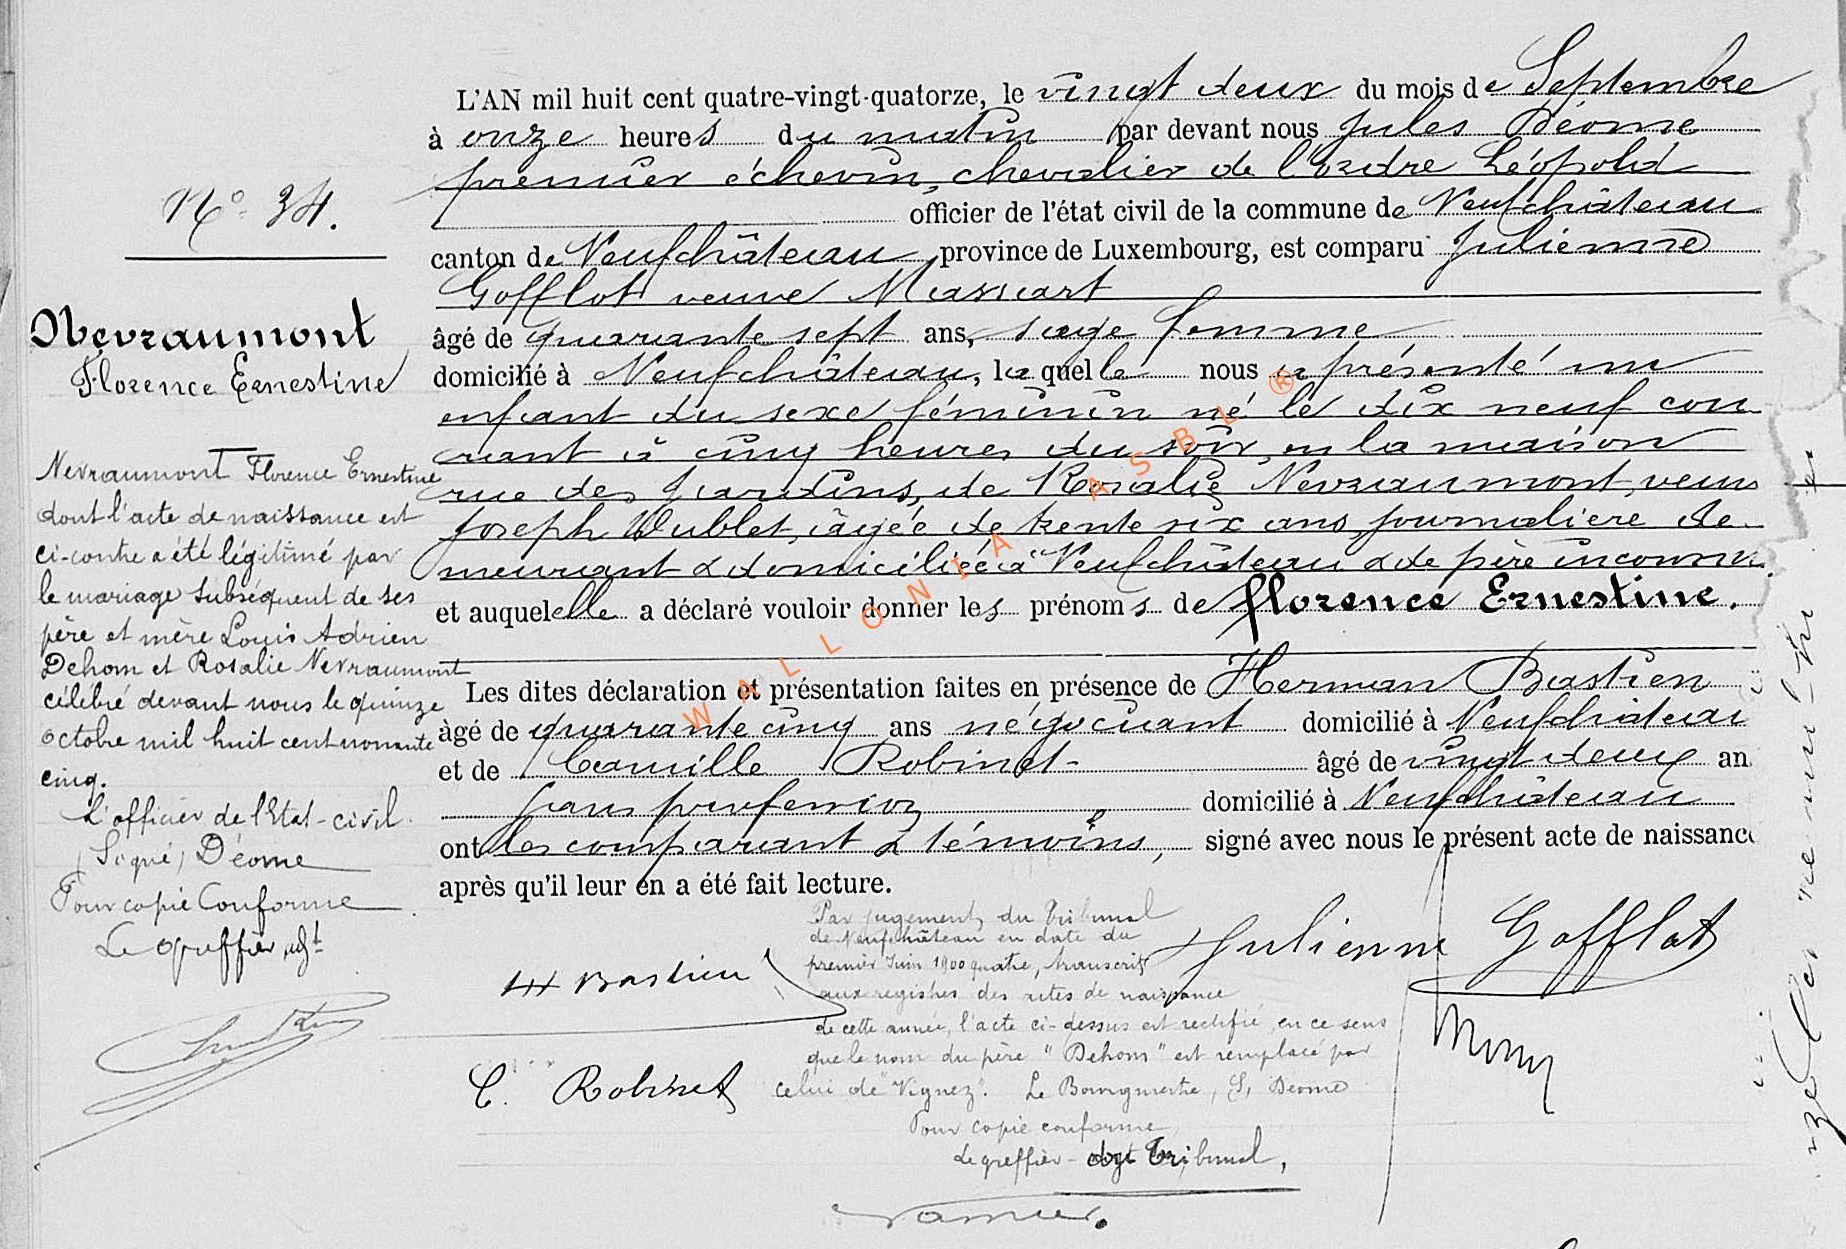 N° 34.
Nevraumont
Florence Ernestine
Nevraumont Florence Ernestine
dont l'acte de naissance est
ci-contre a été légitimé par
le mariage subséquent de ses
père et mère Louis Adrien
Dehom et Rosalie Nevraumont
célébré devant nous le quinze
octobre mil huit cent nonante
cinq.
L'officier de l'Etat-civil
(Signé) Déome
Pour copie Conforme
Le greffier adjt
L'AN mil huit cent quatre-vingt-quatorze, le vingt deux du mois de Septembre
à onze heures du matin par devant nous Jules Déome
premier échevin, chevalier de l'ordre Léopold
officier de l'état civil de la commune de Neufchâteau
canton de Neufchâteau, province de Luxembourg, est comparu Julienne
Gofflot veuve Massart
âgé de quarante sept ans, sage femme
domicilié à Neufchâteau, laquelle nous a présenté un
enfant du sexe féminin né le dix neuf cou
rant à cinq heures du soir, en la maison
rue des Jardins, de Rosalie Nevraumont, veuve
Joseph Dublet, âgée de trente six ans, journalière de
meurant & domiciliée à Neufchâteau & de père inconnu
et auquel elle a déclaré vouloir donner les prénoms de florence Ernestine.
Les dites déclaration et présentation faites en présence de Herman Bastien
âgé de quarante cinq ans négociant domicilié à Neufchâteau
et de Camille Robinet âgé de vingt deux an
sans profession domicilié à Neufchâteau
ont les comparant & témoins, signé avec nous le présent acte de naissance
après qu'il leur en a été fait lecture.
Par jugement du Tribunal
de Neufchâteau en date du
premier Juin 1900 quatre, transcrit
aux registres des actes de naissance
de cette année, l'acte ci-dessus est rectifié en ce sens
que le nom du père "Dehom" est remplacé par
celui de "Vignez". Le Bourgmestre, S, Déome
Pour copie conforme
Le greffier-adjt Tribunal,
Julienne Gofflot
H Bastien
C. Robinet
WALLONIA ASBL ®